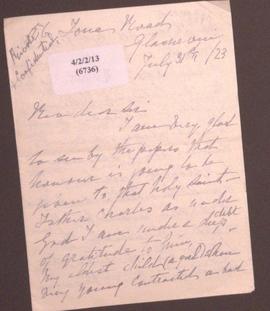 Private &
Confidential
Iona Road
4/2/2/13
(6736)
Glasnevin
July 31st / 23
My dear Sir
I am very glad
to see by the papers that
honour is going to be
given to that holy Saint
Father Charles as under
God I am under a deep debt
of gratitude to him,
My eldest child (a girl) when
very young contracted a bad